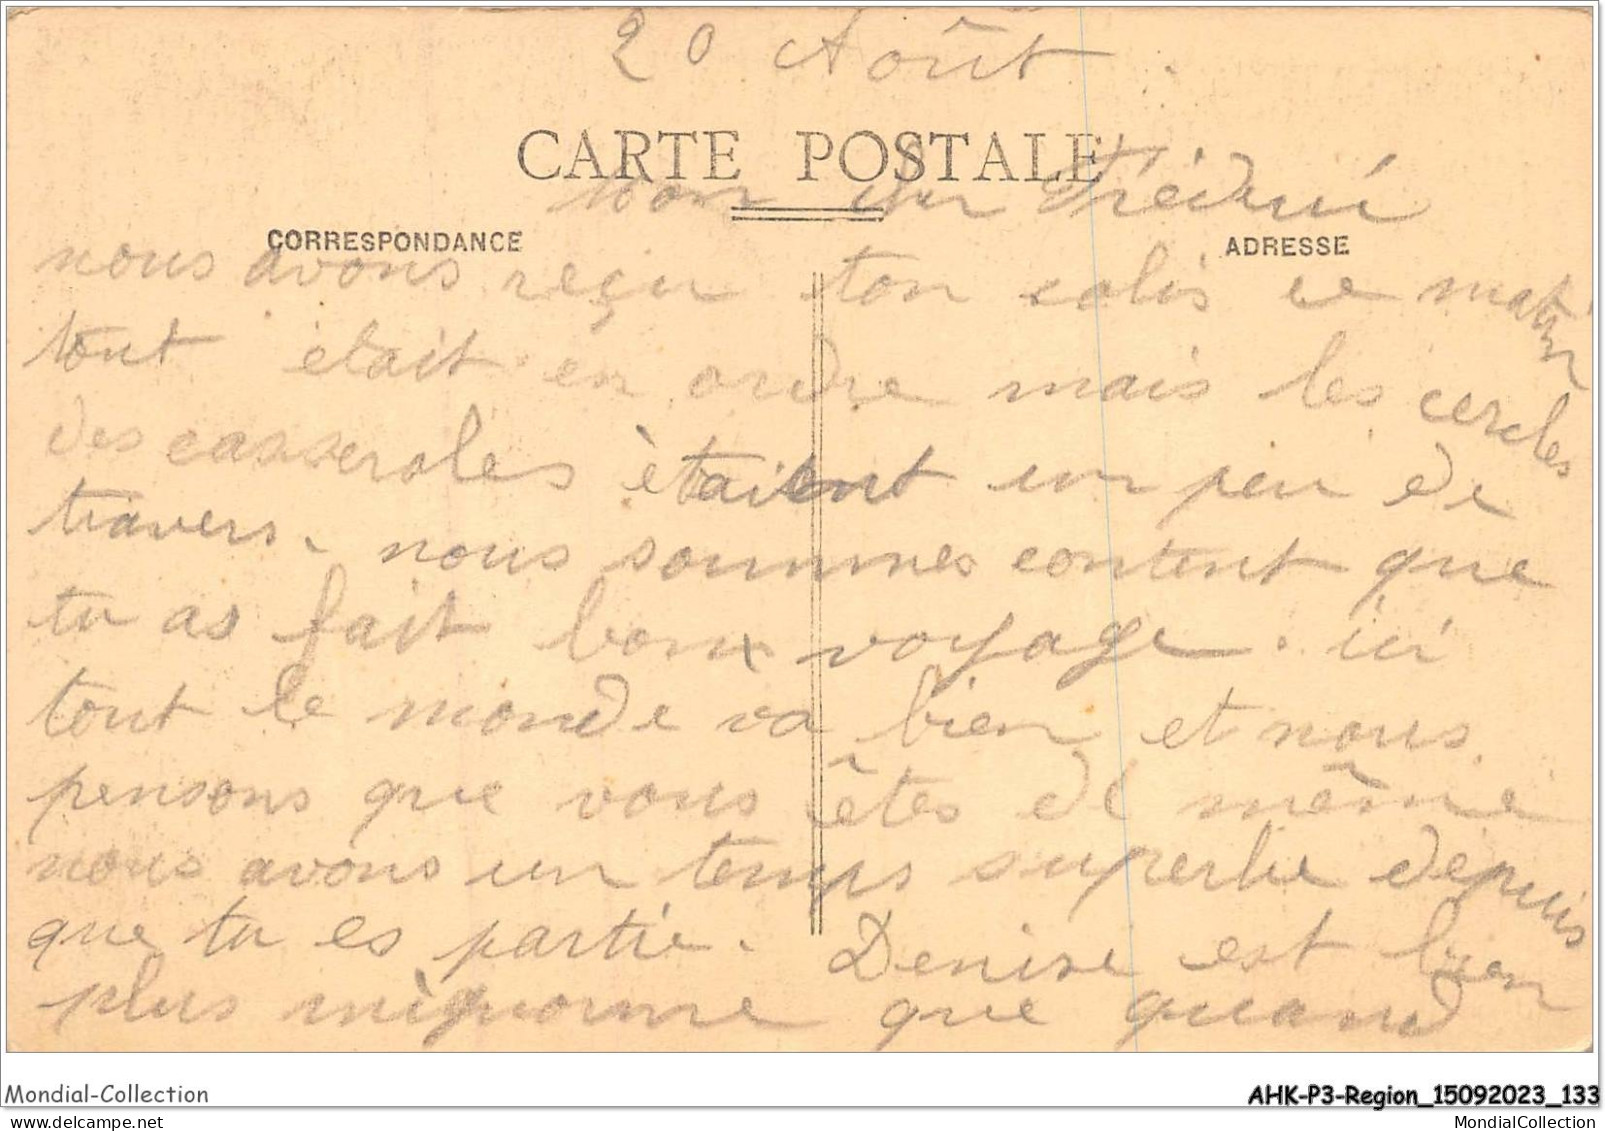 20 Août.
CARTE POSTALE
CORRESPONDANCE
ADRESSE
nous avons reçu ton colis ce matin
tout était en ordre mais les cercles
des casseroles ètaitent un peu de
travers. nous sommes content que
tu as fait bonx voyage. ici
tout le monde va bien et nous
pensons que vous êtes de même
nous avons un temps superbe depuis
que tu es partie. Denise est bien
plus mignonne que quand
Mondial-Collection
AHK-P3-Region_15092023_133
www.mondialcollection.com
MondialCollection